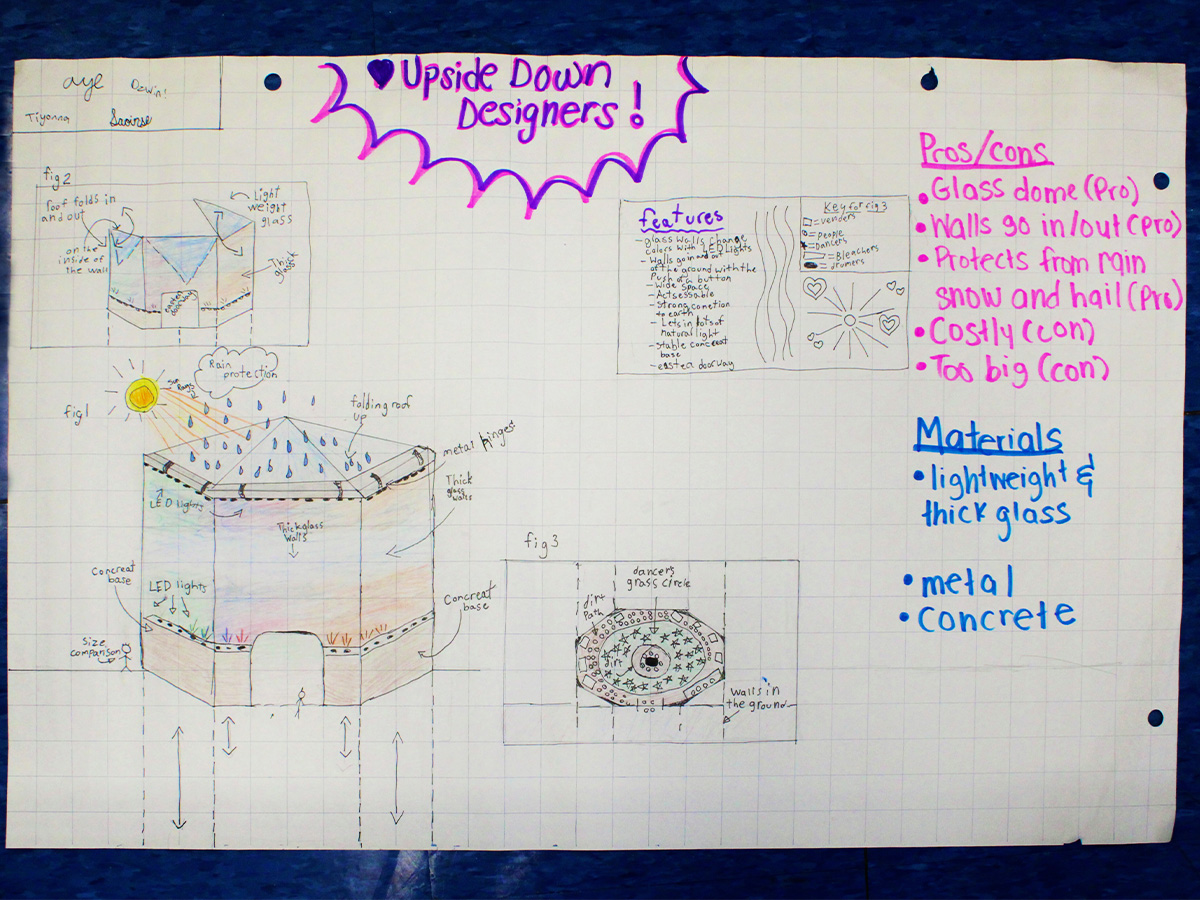 aye Dawin!
Tiyanna Saoirse
♥ Upside Down
Designers!
fig 2
roof folds in
and out
on the
inside of
the wall
Light
weight
glass
Thick
glass
easter
doorway
fig 1
Sun Rays
Rain
protection
folding roof
up
metal hinges
Thick
glass
walls
LED lights
Thick glass
walls
Concreat
base
LED lights
Concreat
base
size
comparison
features
- glass walls change
colors with LED Lights
- Walls go in and out
of the ground with the
Push of a button
- Wide space
- Actsessable
- Strong conetion
to earth
- Lets in lots of
natural light
- Stable concreat
base
- easter doorway
Key for fig 3
= venders
= people
= Dancers
= Bleachers
= drumers
fig 3
dancers
grass circle
dirt
Path
dirt
walls in
the ground
Pros/cons
• Glass dome (Pro)
• Walls go in/out (pro)
• Protects from rain
snow and hail (Pro)
• Costly (con)
• Too big (con)
Materials
• lightweight &
thick glass
• metal
• Concrete